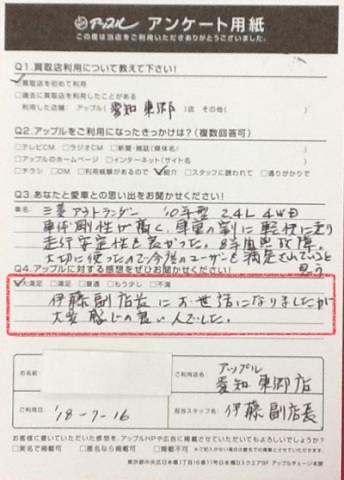 アップル アンケート用紙
この度は当店をご利用いただきありがとうございました。
Q1.買取店利用について教えて下さい!
買取店を初めて利用
□過去に買取店を利用したことがある
利用した店舗: アップル( 愛知東郷 )店 その他( )
Q2.アップルをご利用になったきっかけは?(複数回答可)
□テレビCM □ラジオCM □新聞・雑誌(媒体名/ )
□アップルのホームページ □インターネット(サイト名 )
□チラシ □DM □利用経験があるので 紹介 □スタッフに誘われて □通りがかりで
Q3.あなたと愛車との思い出をお聞かせください!
車名 三菱アウトランダー '10年型 2.4L 4WD
車体剛性が高く、車重の割に軽快に走り
走行安定性も良かった。8年間無故障。
大切に使ったので今度のユーザーも満足されていると
思う
Q4.アップルに対する感想をぜひお聞かせください!
大満足 □満足 □普通 □もう少し □不満
伊藤副店長にお世話になりましたが
大変感じの良い人でした。
お名前
ご利用店名: アップル
愛知東郷店
ご利用日: '18-7-16
担当スタッフ名: 伊藤副店長
お客様に書いていただいた感想を、アップルHPや広告に掲載させていただいてもよろしいでしょうか?
□実名で掲載可 □匿名なら掲載可 □掲載不可